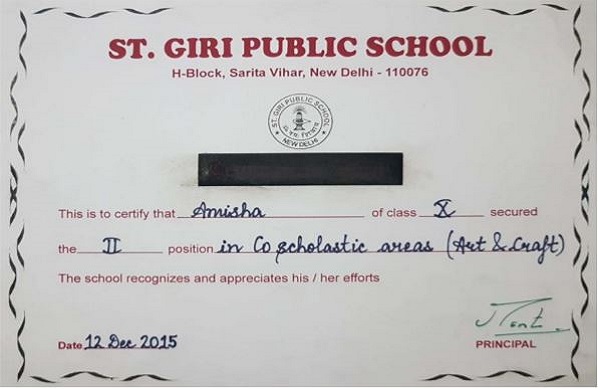 ST. GIRI PUBLIC SCHOOL
H-Block, Sarita Vihar, New Delhi - 110076
ST. GIRI PUBLIC SCHOOL
NEW DELHI
This is to certify that Amisha of class X secured
the II position in Co scholastic areas (Art & Craft)
The school recognizes and appreciates his / her efforts
Date 12 Dec 2015
PRINCIPAL